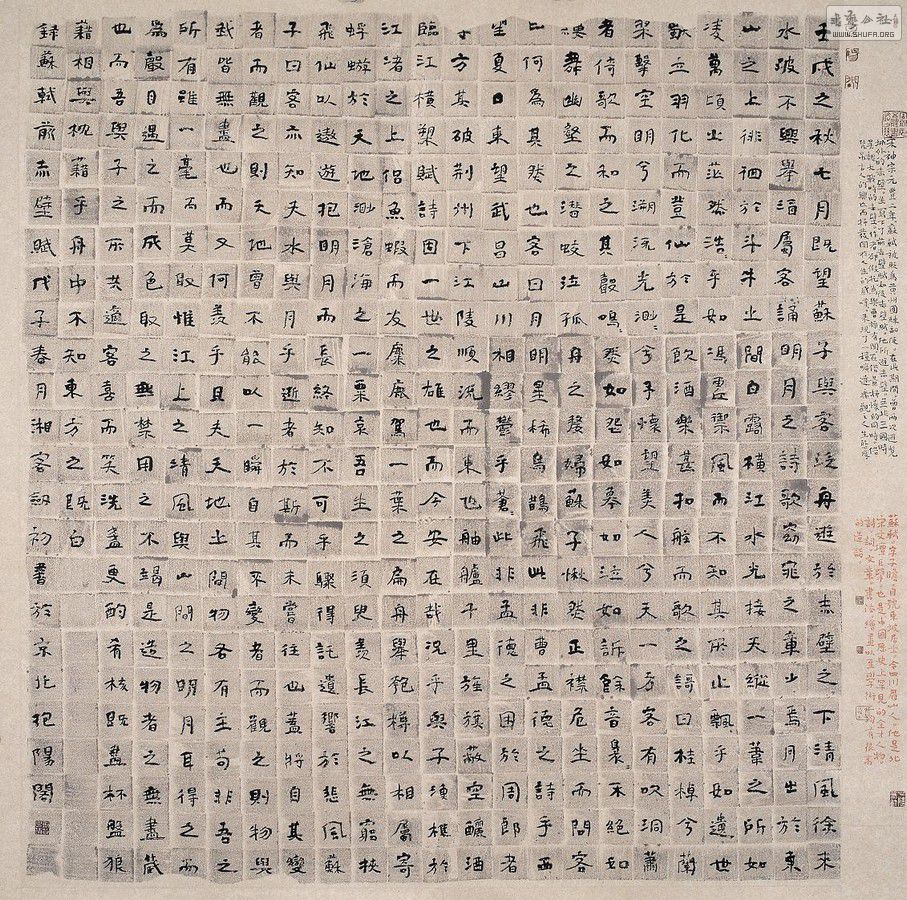 壬戌之秋七月既望蘇子與客泛舟遊於赤壁之下清風徐來
水波不興舉酒屬客誦明月之詩歌窈窕之章少焉月出於東
山之上徘徊於斗牛之間白露橫江水光接天縱一葦之所如
凌萬頃之茫然浩乎如馮虛禦風而不知其所止飄乎如遺世
獨立羽化而登仙於是飲酒樂甚扣舷而歌之謌曰桂棹兮蘭
槳擊空明兮溯流光渺兮予懷望美人兮天一方客有吹洞蕭
者倚歌而和之其聲鳴然如怨如慕如泣如訴餘音裊不絕如
縷舞幽壑之潛蛟泣孤舟之嫠婦蘇子愀然正襟危坐而問客
曰何為其然也客曰月明星稀烏鵲飛此非曹孟德之詩乎西
望夏口東望武昌山川相繆鬱乎蒼此非孟德之困於周郎者
乎方其破荊州下江陵順流而東也舳艫千里旌旗蔽空釃酒
臨江橫槊賦詩固一世之雄也而今安在哉況乎與子漁樵於
江渚之上侶魚蝦而友麋鹿駕一葉之扁舟舉匏樽以相屬寄
蜉蝣於天地渺滄海之一粟哀吾生之須臾羨長江之無窮挾
飛仙以遨遊抱明月而長終知不可乎驟得託遺響於悲風蘇
子曰客亦知夫水與月乎逝者於斯而未嘗往也蓋將自其變
者而觀之則天地曾不能以一瞬自其不變者而觀之則物與
我皆無盡也而又何羨乎且夫天地之間物各有主苟非吾之
所有雖一毫而莫取惟江上之清風與山間之明月耳得之而
為聲目遇之而成色取之無禁用之不竭是造物者之無盡藏
也而吾與子之所共適客喜而笑洗盞更酌肴核既盡杯盤狼
藉相與枕藉乎舟中不知東方之既白
錄蘇軾前赤壁賦戊子春月湘客劍初書於京北抱陽閣
宋神宗元豐五年蘇軾被貶黃州團練副使
蘇軾字子瞻自號東坡居士今四川眉山人他是北
宋文壇巨擘也是中國歷史上罕見的全才人物
的造詣
WWW.SHUFA.ORG